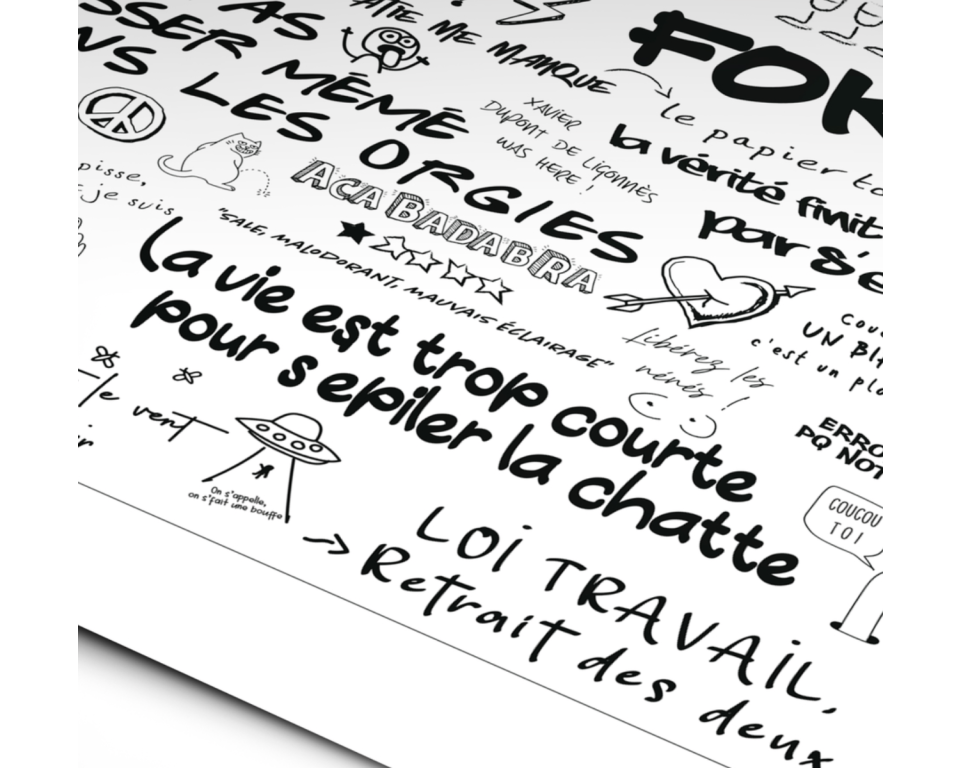 AS
SSER MÊME
NS LES ORGIES
ME MANQUE
FOK
le papier
XAVIER
DUPONT DE LIGONNÈS
WAS HERE !
la vérité finit
par s'e
pisse,
je suis
ACABADABRA
"SALE, MALODORANT, MAUVAIS ÉCLAIRAGE"
La vie est trop courte
pour s epiler la chatte
libérez les
nénés !
UN
c'est un
ERRO
PQ NOT
COUCOU
TOI
le vent
On s'appelle,
on s'fait une bouffe !
→ LOI TRAVAIL,
Retrait des deux